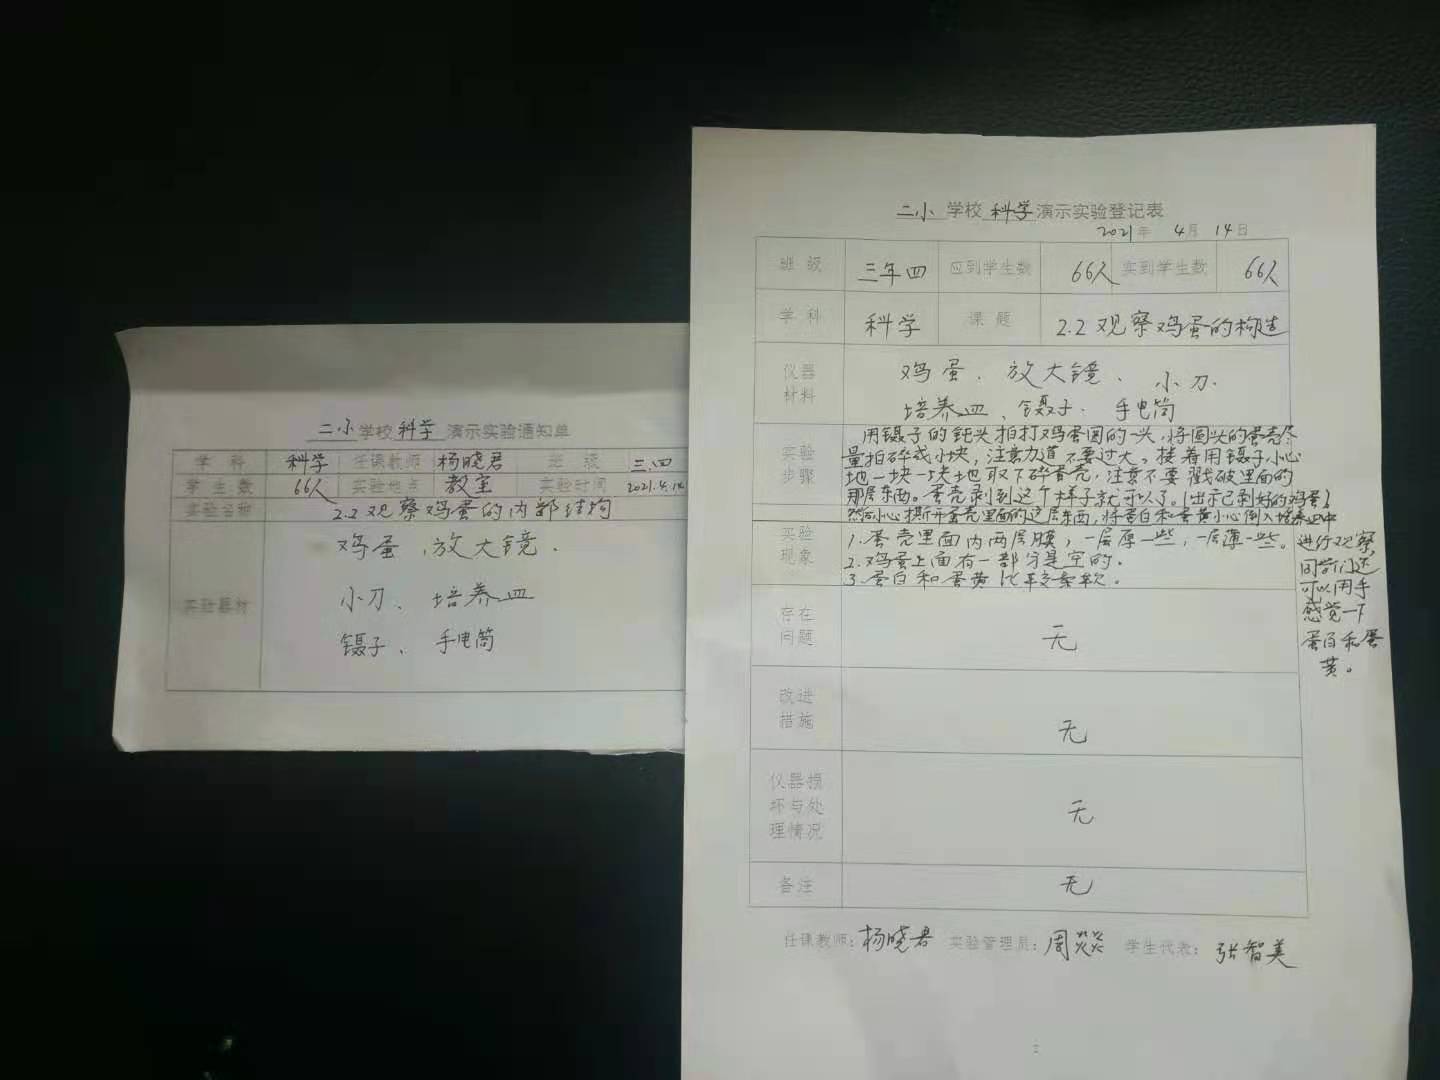 二小学校科学演示实验通知单
学科 科学 任课教师 杨晓君 班级 三.四
学生数 66人 实验地点 教室 实验时间 2021.4.14
实验名称 2.2观察鸡蛋的内部结构
实验器材 鸡蛋、放大镜、
小刀、培养皿
镊子、手电筒
二小学校科学演示实验登记表
2021年 4月 14日
班级 三年四 应到学生数 66人 实到学生数 66人
学科 科学 课题 2.2观察鸡蛋的构造
仪器材料 鸡蛋、放大镜、小刀、
培养皿、镊子、手电筒
实验步骤 用镊子的钝头拍打鸡蛋圆的一头,将圆头的蛋壳尽
量拍碎成小块,注意力道不要过大。接着用镊子小心
地一块一块地取下碎蛋壳,注意不要戳破里面的
那层东西。蛋壳剥到这个样子就可以了。(出示已剥好的鸡蛋)
然后小心撕开蛋壳里面的这层东西,将蛋白和蛋黄小心倒入培养皿中
进行观察,
同学们还
可以用手
感觉一下
蛋白和蛋
黄。
实验现象 1.蛋壳里面内两层膜,一层厚一些,一层薄一些。
2.鸡蛋上面有一部分是空的。
3.蛋白和蛋黄比较柔软。
存在问题 无
改进措施 无
仪器损坏与处理情况 无
备注 无
任课教师:杨晓君 实验管理员:周焱 学生代表:张智美
2